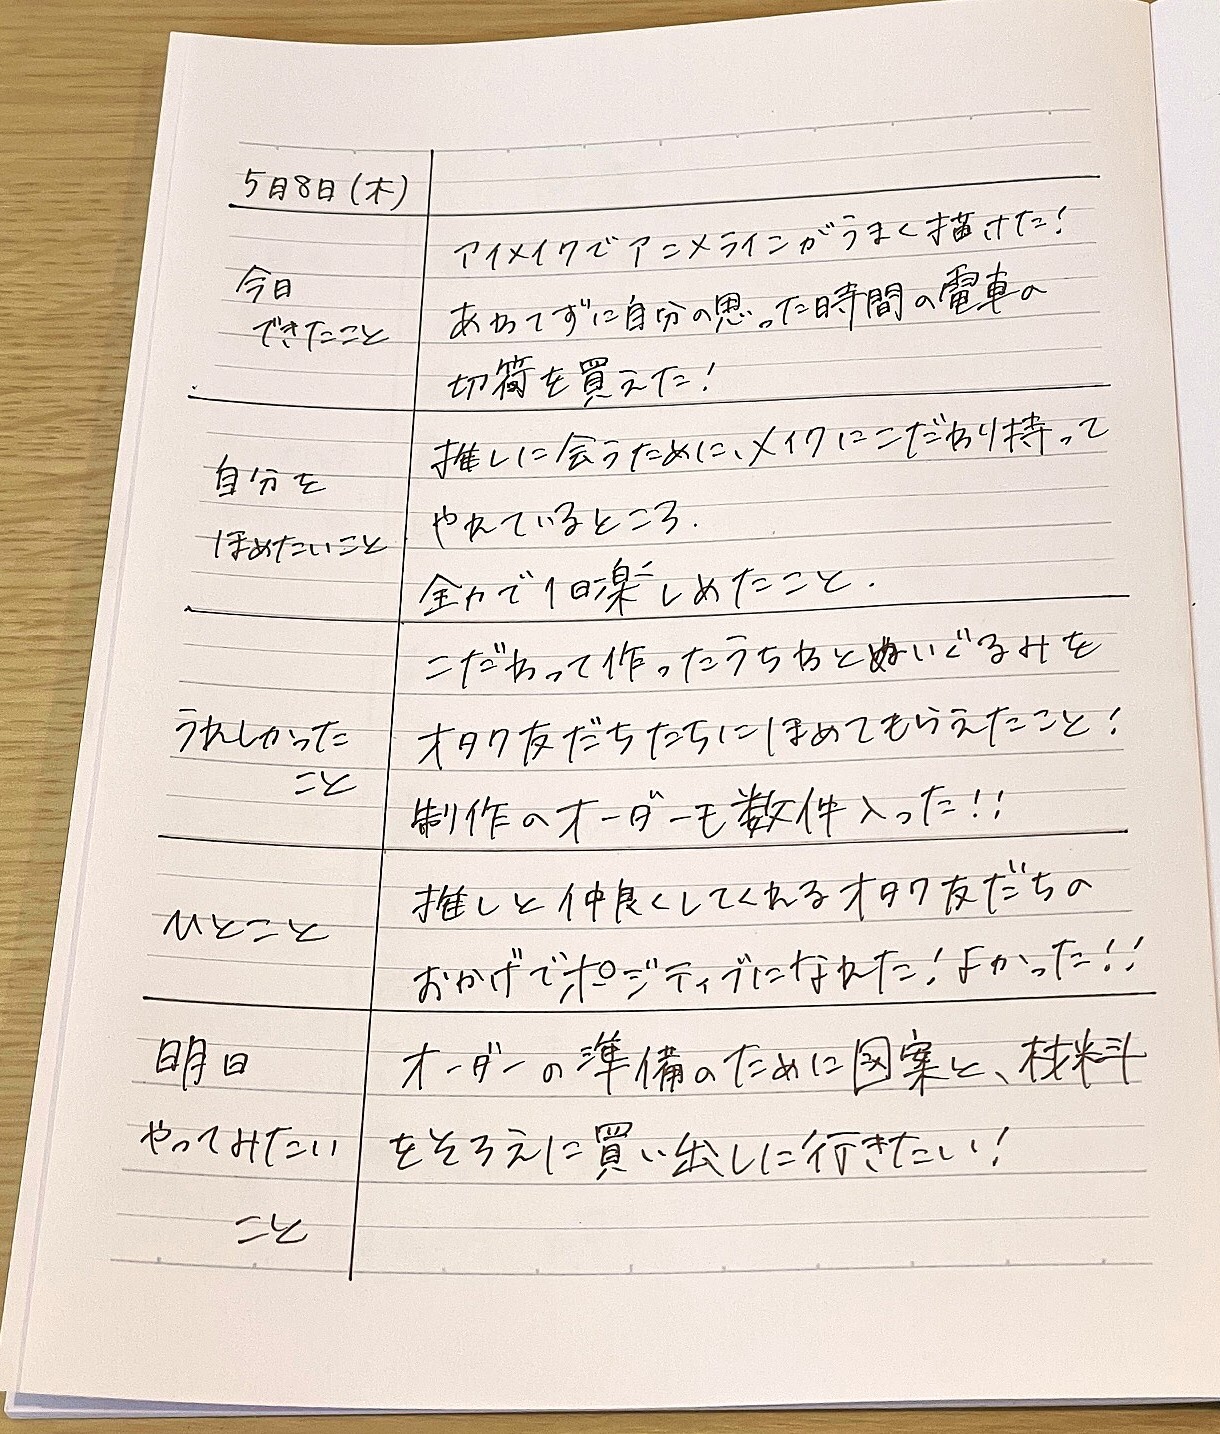 5月8日(木)
今日
できたこと
アイメイクでアニメラインがうまく描けた!
あわてずに自分の思った時間の電車の
切符を買えた!
自分を
ほめたいこと
推しに会うために、メイクにこだわり持って
やれているところ.
全力で1日楽しめたこと.
うれしかった
こと
こだわって作ったうちわとぬいぐるみを
オタク友だちたちにほめてもらえたこと!
制作のオーダーも数件入った!!
ひとこと
推しと仲良くしてくれるオタク友だちの
おかげでポジティブになれた!よかった!!
明日
やってみたい
こと
オーダーの準備のために図案と、材料
をそろえに買い出しに行きたい!